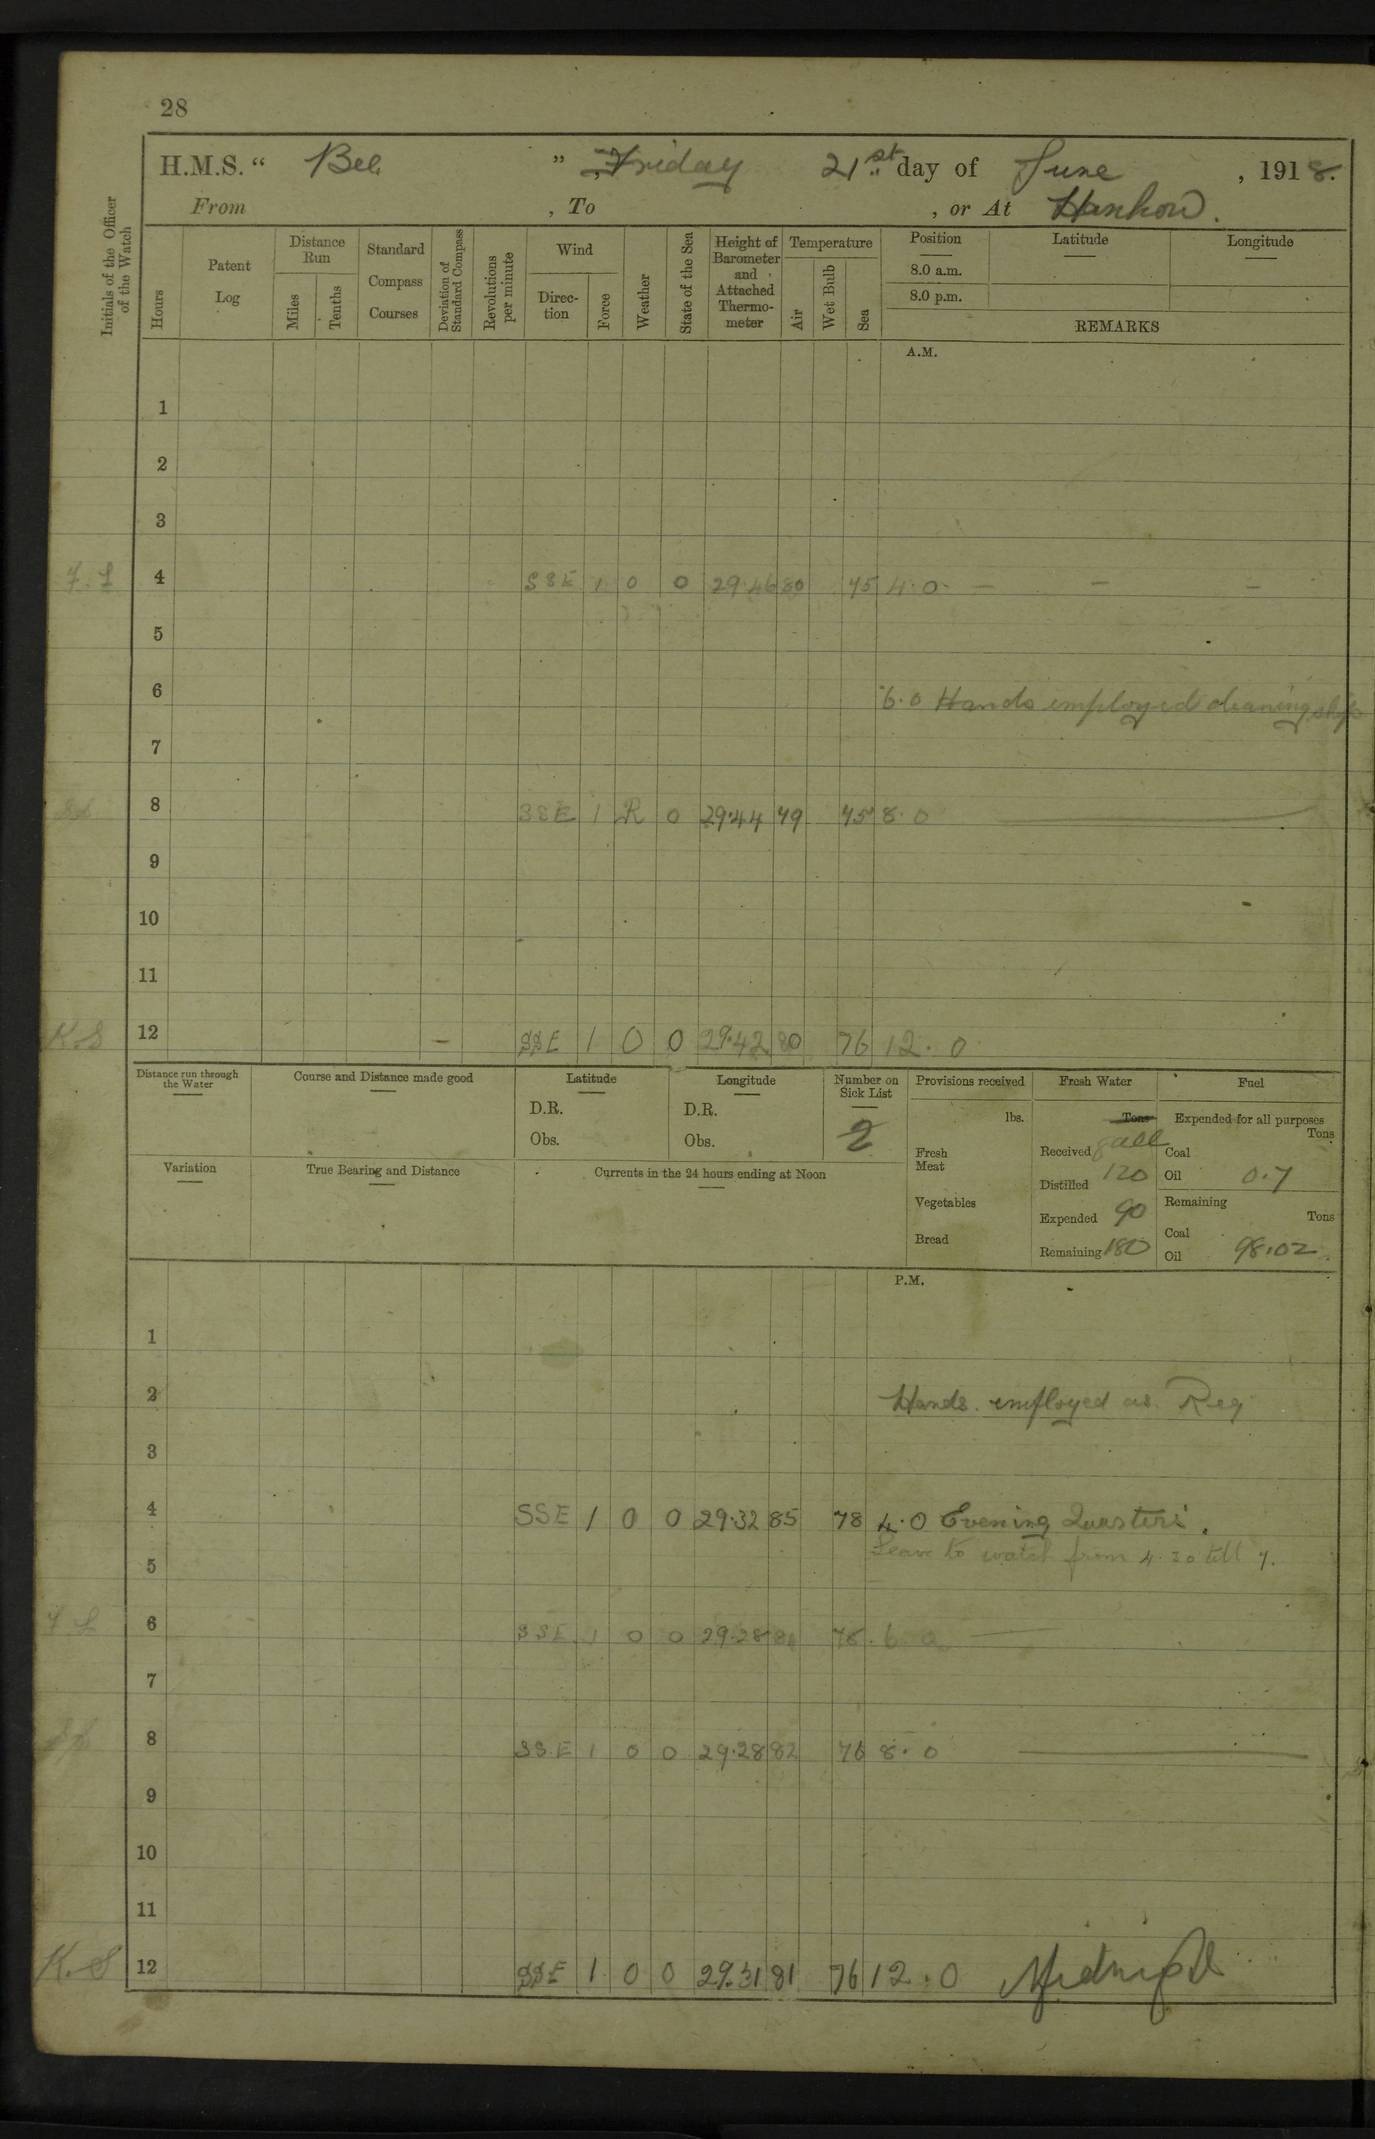 28
H.M.S. “ Bee ”, Friday 21st day of June, 1918.
From , To , or At Hankow.
Initials of the Officer of the Watch
Hours
Patent Log
Distance Run
Miles
Tenths
Standard Compass Courses
Deviation of Standard Compass
Revolutions per minute
Wind
Direction
Force
Weather
State of the Sea
Height of Barometer and Attached Thermometer
Temperature
Air
Wet Bulb
Sea
Position Latitude Longitude
8.0 a.m.
8.0 p.m.
REMARKS
A.M.
1
2
3
4 SSE 1 0 0 29.46 80 75 4.0 — — —
5
6 6.0 Hands employed cleaning ship
7
8 SSE 1 R 0 29.44 79 75 8.0
9
10
11
K.S 12 SSE 1 0 0 29.42 80 76 12.0
Distance run through the Water
Course and Distance made good
Latitude
D.R.
Obs.
Longitude
D.R.
Obs.
Number on Sick List
2
Variation
True Bearing and Distance
Currents in the 24 hours ending at Noon
Provisions received
lbs.
Fresh Meat
Vegetables
Bread
Fresh Water
Tons
Received gall
Distilled 120
Expended 90
Remaining 180
Fuel
Expended for all purposes
Tons
Coal
Oil 0.7
Remaining
Tons
Coal
Oil 98.02
P.M.
1
2 Hands employed as Req
3
4 SSE 1 0 0 29.32 85 78 4.0 Evening Quarters.
Leave to watch from 4.20 till 7.
5
6 SSE 1 0 0 29.28 78 6.0
7
8 SSE 1 0 0 29.28 82 76 8.0
9
10
11
K.S 12 SSE 1 0 0 29.31 81 76 12.0 Midnight